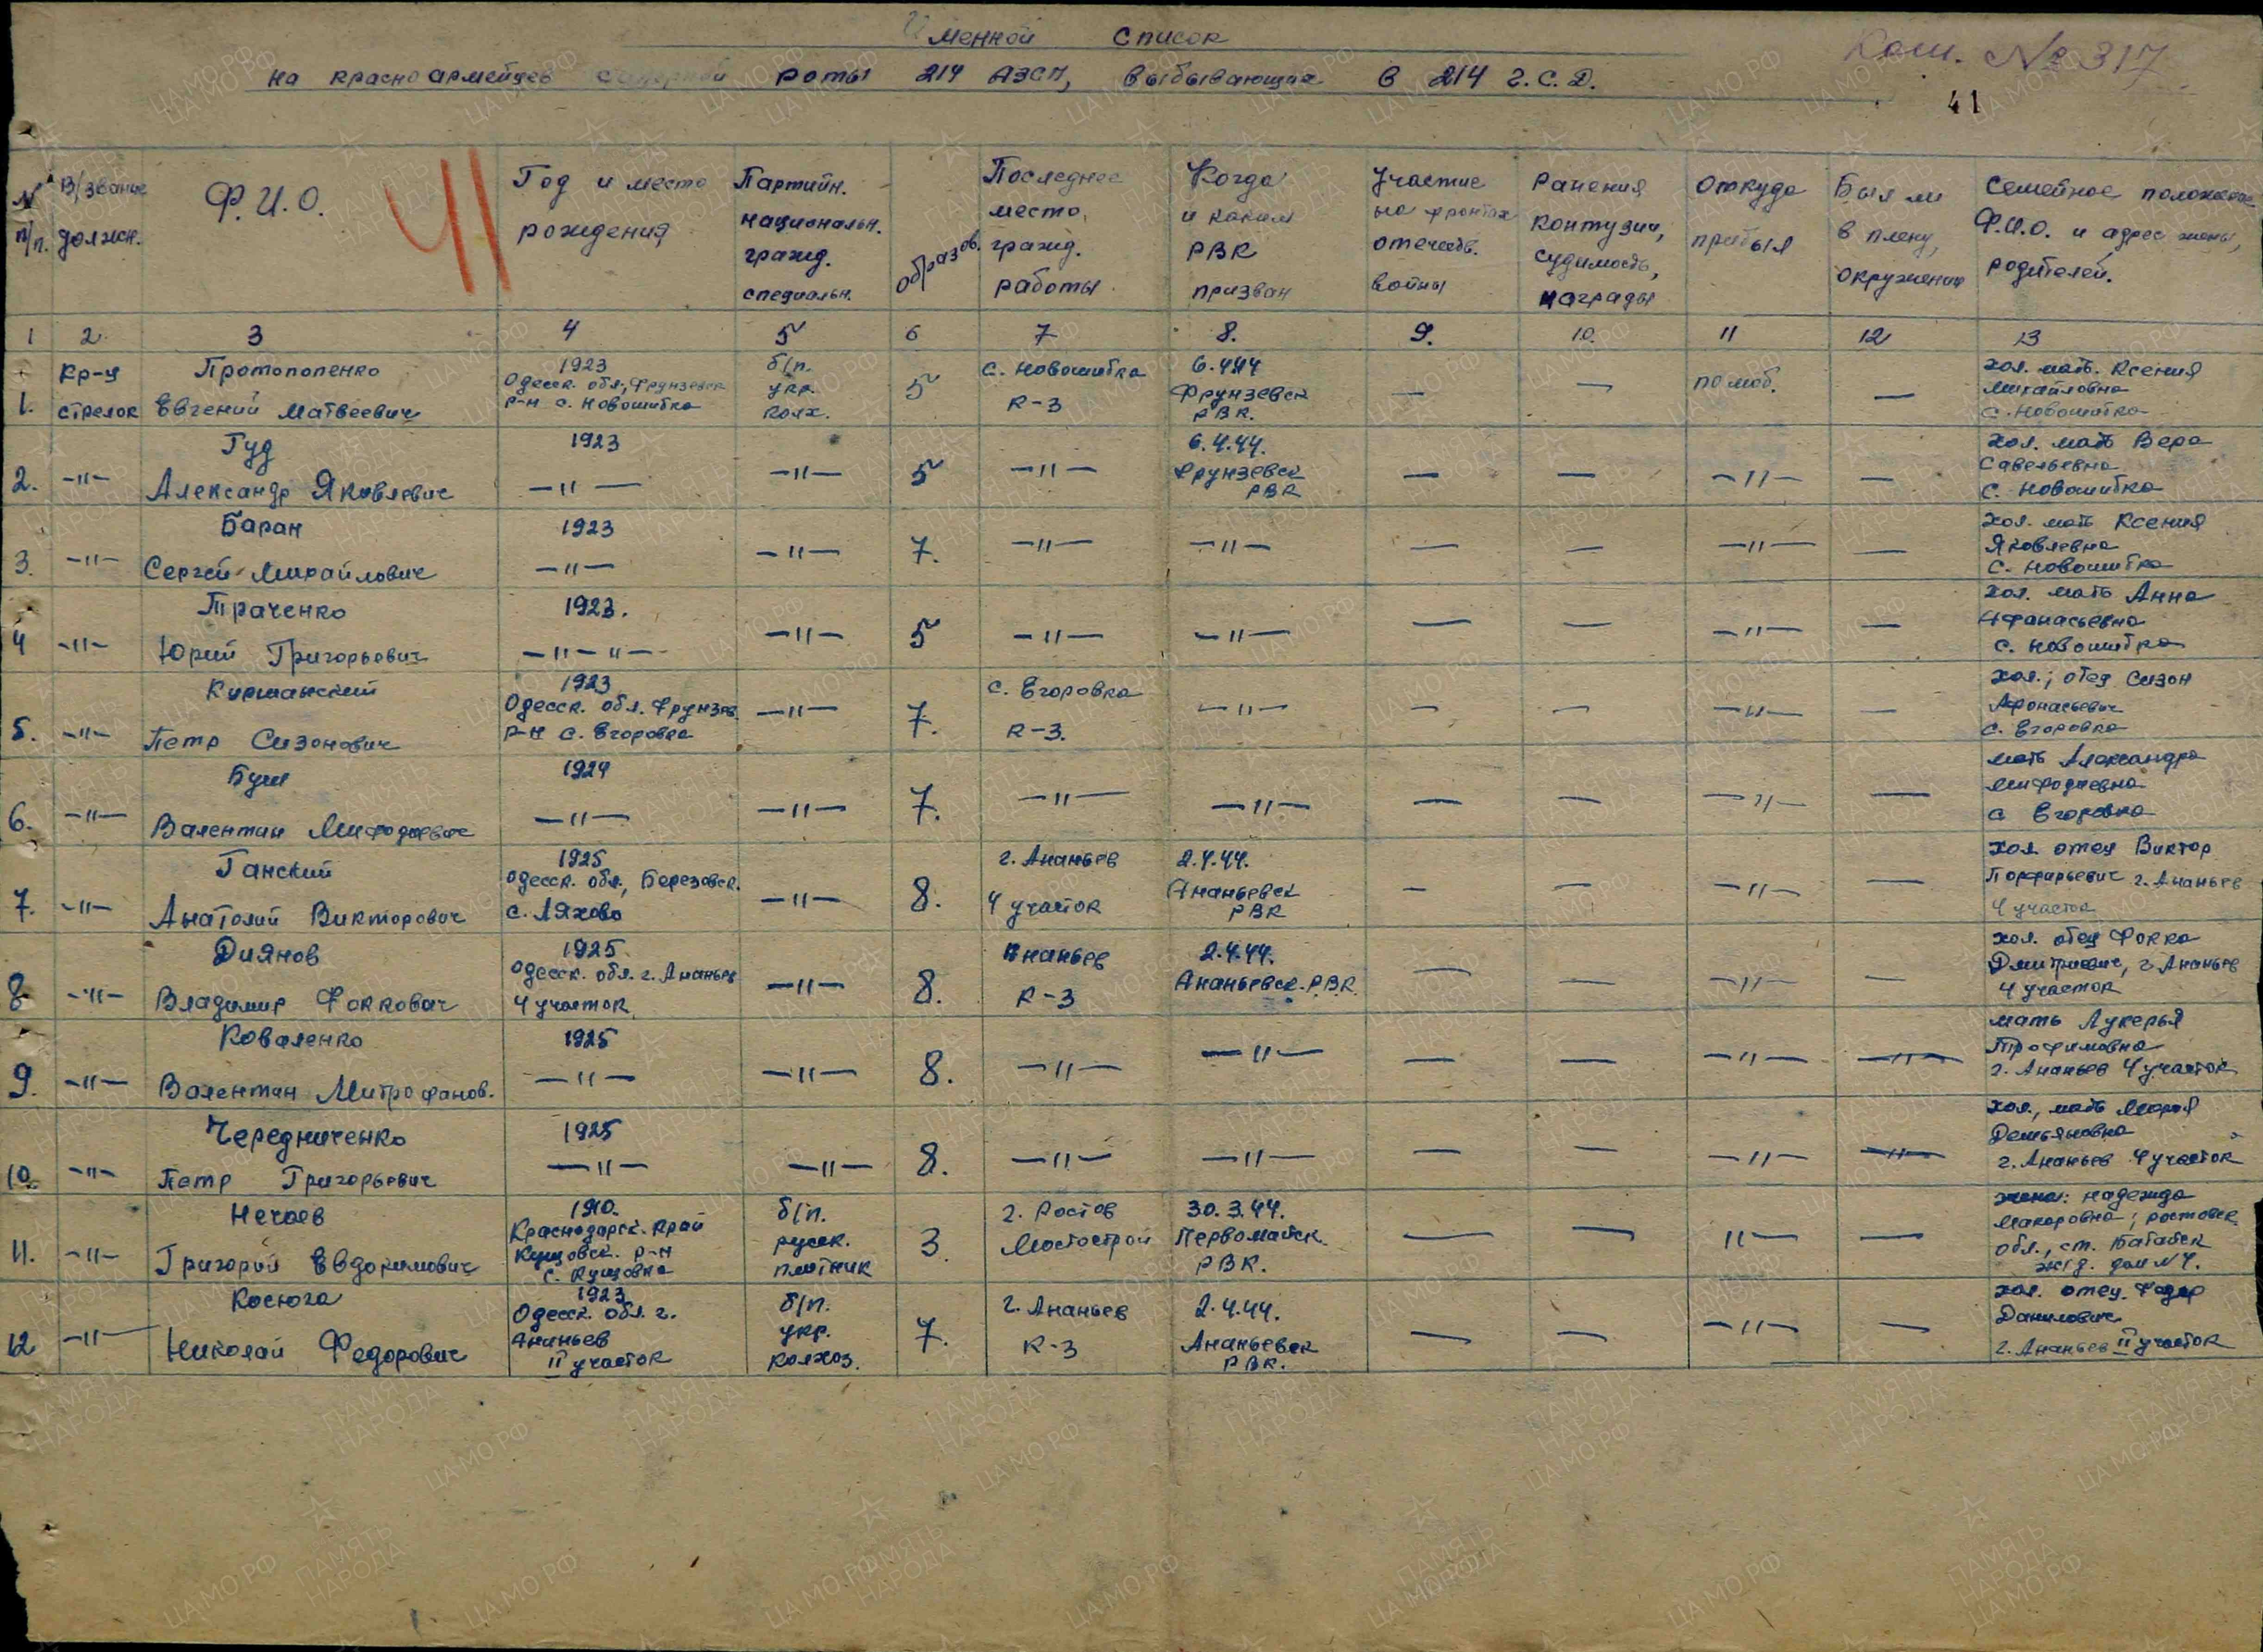 Именной список
Ком. № 317
на красноармейцев роты 214 АЗСП, выбывающих в 214 г.С.Д.
41
41
№ п/п.
В/звание должн.
Ф.И.О.
Год и место рождения
Партийн. национальн. гражд. специальн.
образов.
Последнее место гражд. работы
Когда и каким РВК призван
Участие на фронтах отечеств. войны
Ранения контузии, судимость, награды
Откуда прибыл
Был ли в плену, окружении
Семейное положение Ф.И.О. и адрес жены, родителей.
1 2 3 4 5 6 7 8. 9. 10. 11 12 13
1. Кр-ц стрелок Протопопенко Евгений Матвеевич 1923 Одесск. обл., Фрунзевск р-н с. Новошибка б/п. укр. колх. 5 с. Новошибка К-3 6.4.44 Фрунзевск РВК. — — по моб. — хол. мать. Ксения Михайловна с. Новошибка
2. —"— Гуд Александр Яковлевич 1923 —"— —"— 5 —"— 6.4.44. Фрунзевск РВК — — —"— — хол. мать Вера Савельевна с. Новошибка
3. —"— Баран Сергей Михайлович 1923 —"— —"— 7. —"— —"— — — —"— — хол. мать Ксения Яковлевна с. Новошибка
4 —"— Траченко Юрий Григорьевич 1923. —"—"— —"— 5 —"— —"— — — —"— — хол. мать Анна Афанасьевна с. Новошибка
5. —"— Киршанский Петр Сизонович 1923 Одесск. обл. Фрунзев. р-н с. Егоровка —"— 7. с. Егоровка К-3. —"— — — —"— — хол.; отец Сизон Афонасьевич с. Егоровка
6. —"— Буш Валентин Мифодиевич 1924 —"— —"— 7. —"— —"— — — —"— — мать Александра Мифодиевна с Егоровка
7. —"— Ганский Анатолий Викторович 1925 Одесск. обл., Березовск. с. Ляхово —"— 8. г. Ананьев 4 участок 2.4.44. Ананьевск РВК — — —"— — хол. отец Виктор Порфирьевич г. Ананьев 4 участок
8 —"— Диянов Владимир Фоккович 1925 Одесск. обл. г. Ананьев 4 участок —"— 8. Ананьев К-3 2.4.44. Ананьевск. Р.В.К. — — —"— — хол. отец Фокка Дмитриевич, г. Ананьев 4 участок
9. —"— Коваленко Валентин Митрофанов. 1925 —"— —"— 8. —"— —"— — — —"— —"— мать Лукерья Трофимовна г. Ананьев 4 участок
10. —"— Чередниченко Петр Григорьевич 1925 —"— —"— 8. —"— —"— — — —"— —"— хол., мать Мария Демьяновна г. Ананьев 4 участок
11. —"— Нечаев Григорий Евдокимович 1910. Краснодарск. край Кущовск. р-н с. Кущовка б/п. русск. плотник 3 г. Ростов Мостострой 30.3.44. Первомайск. РВК. — — "— — жена: Надежда Макаровна; Ростовск. обл., ст. Батайск ж/д. дом №4.
12 —"— Косюга Николай Федорович 1923 Одесск. обл. г. Ананьев II участок б/п. укр. колхоз. 7. г. Ананьев К-3 2.4.44. Ананьевск РВК. — — —"— — хол. отец. Федор Данилович г. Ананьев II участок